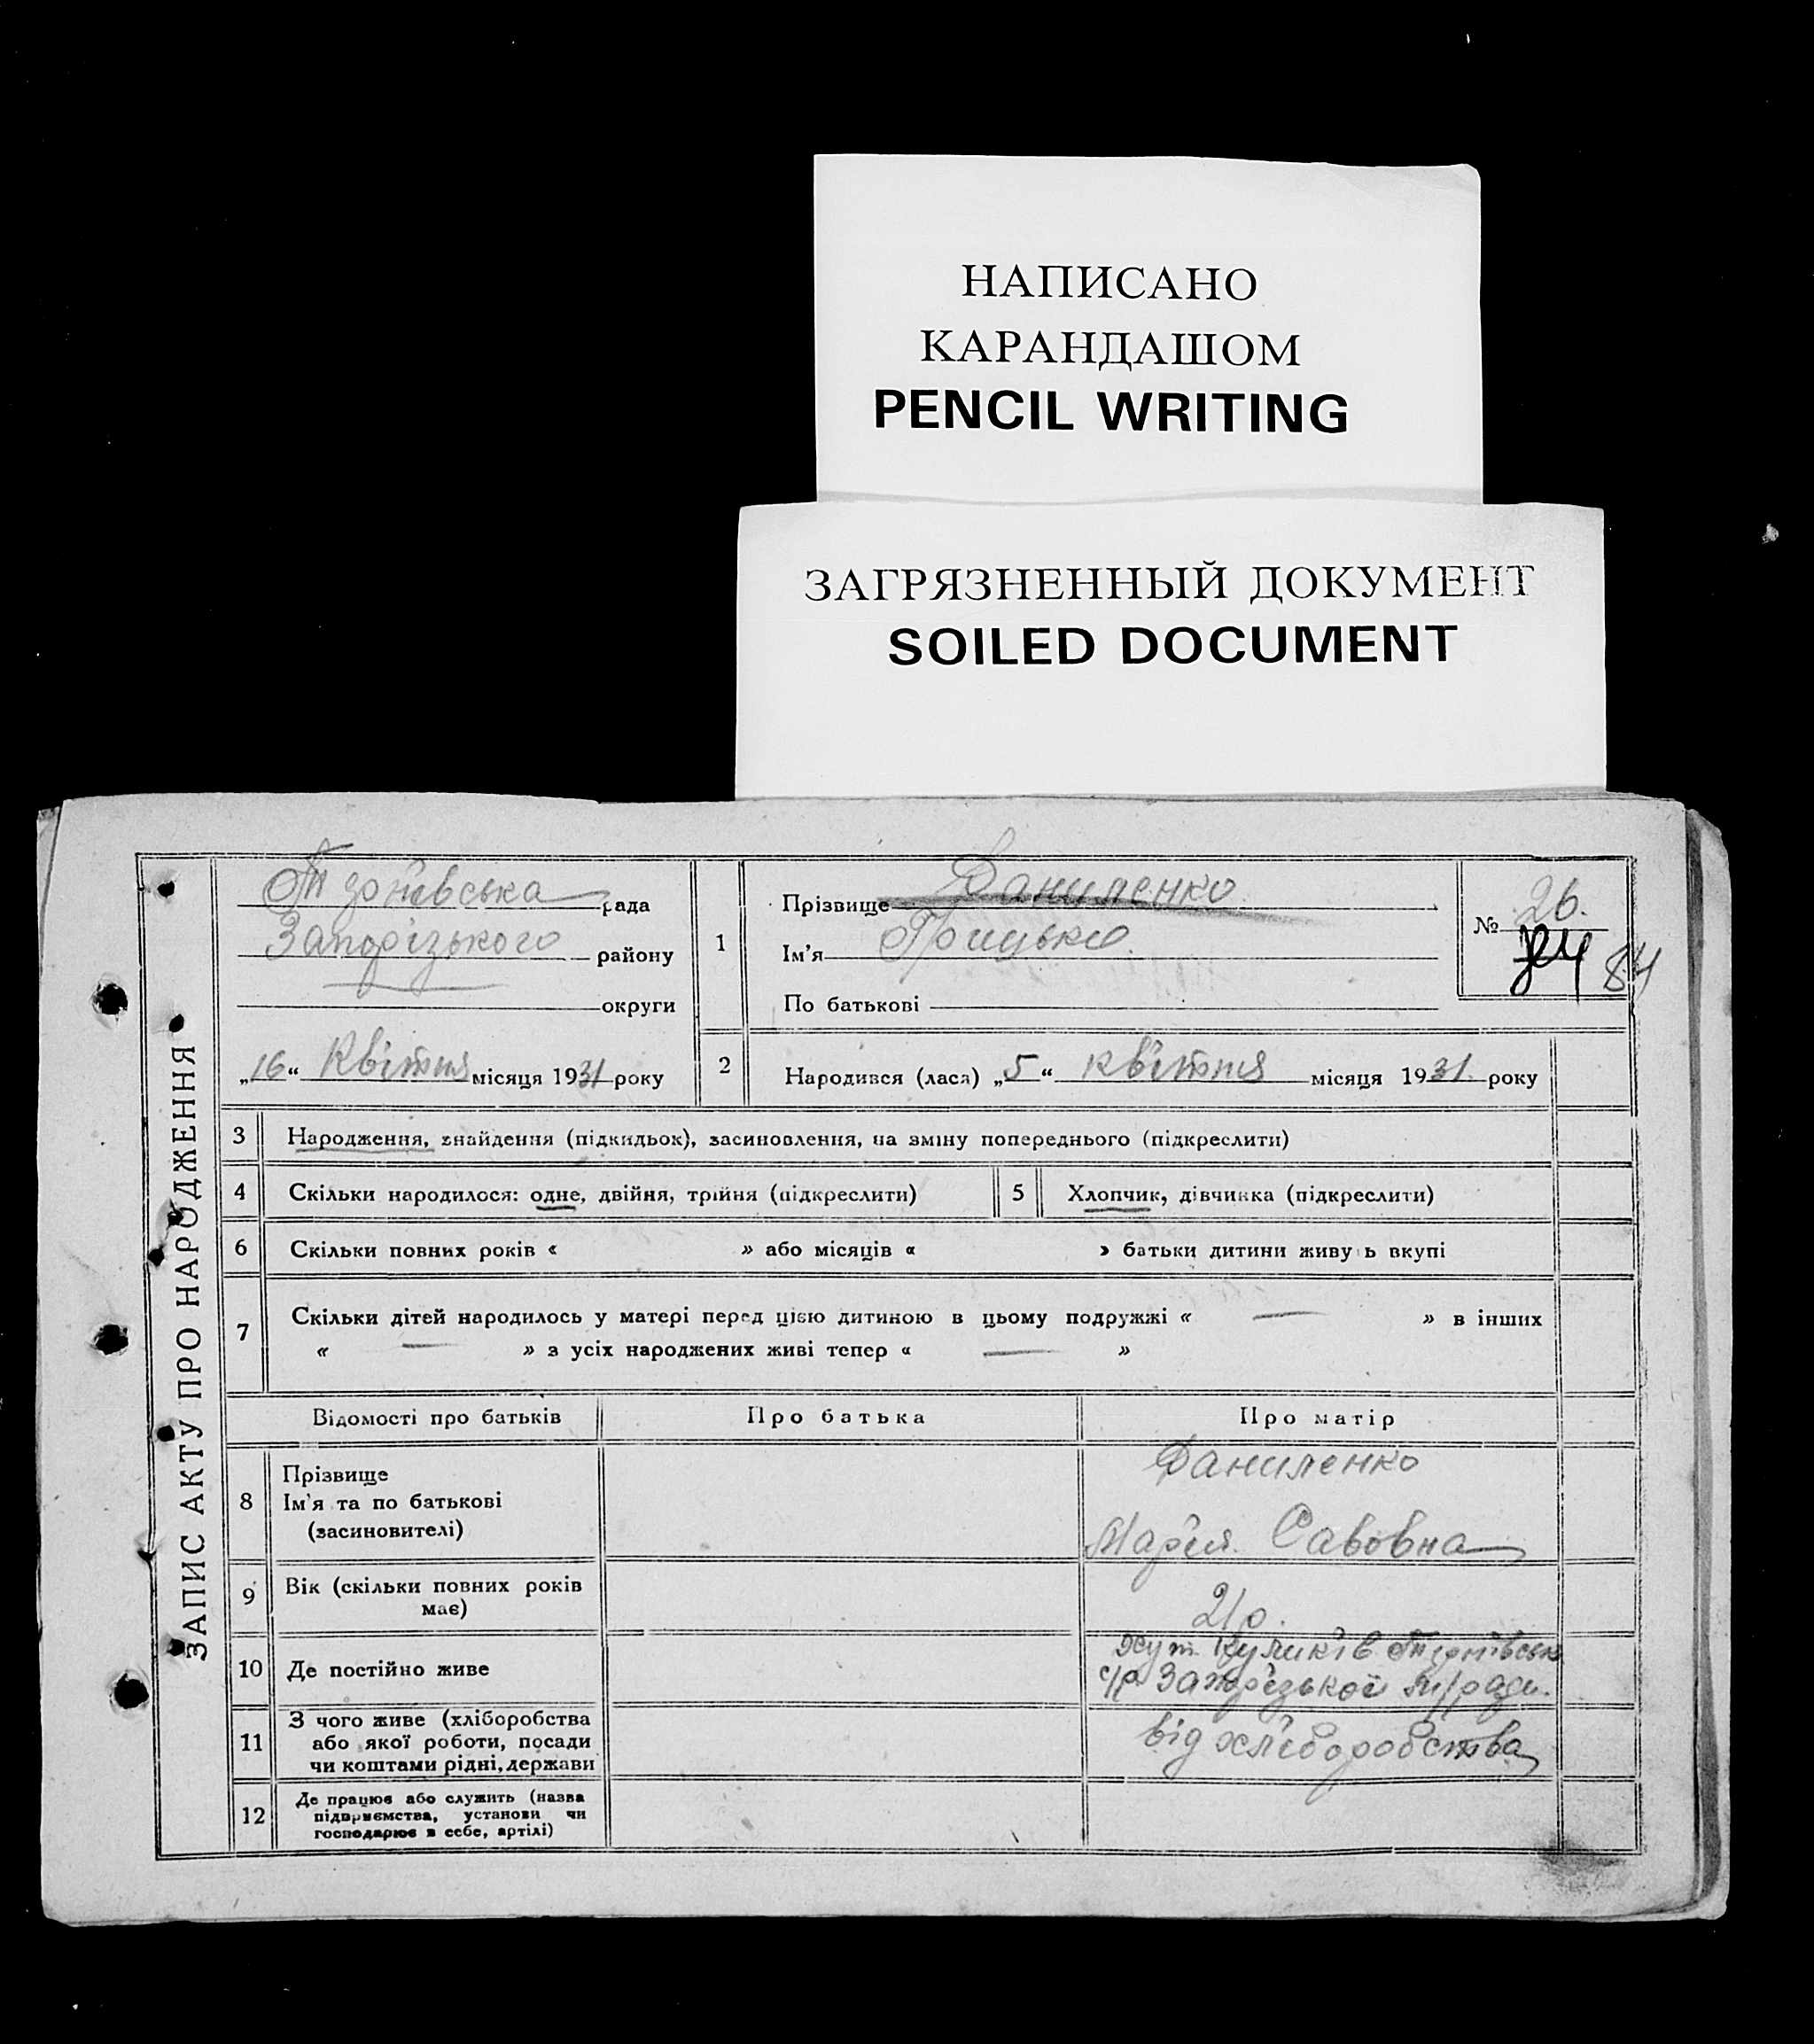 НАПИСАНО
КАРАНДАШОМ
PENCIL WRITING
ЗАГРЯЗНЕННЫЙ ДОКУМЕНТ
SOILED DOCUMENT
ЗАПИС АКТУ ПРО НАРОДЖЕННЯ
рада
Запорізького району
округи
„16“ Квітня місяця 1931 року
1
Прізвище Даниленко
Ім'я Грицько.
По батькові
№ 26.
84
2 Народився (лася) „5“ квітня місяця 1931 року
3 Народження, знайдення (підкидьок), засиновлення, на зміну попереднього (підкреслити)
4 Скільки народилося: одне, двійня, трійня (підкреслити) 5 Хлопчик, дівчинка (підкреслити)
6 Скільки повних років « » або місяців « » батьки дитини живуть вкупі
7 Скільки дітей народилось у матері перед цією дитиною в цьому подружжі « — » в інших
« — » з усіх народжених живі тепер « — »
Відомості про батьків Про батька Про матір
8 Прізвище
Ім'я та по батькові
(засиновителі)
Даниленко
Марія Савовна
9 Вік (скільки повних років
має)
21 р.
10 Де постійно живе
хут. Куликів
с/р Запорізької м/ради.
11 З чого живе (хліборобства
або якої роботи, посади
чи коштами рідні, держави
від хліборобства
12 Де працює або служить (назва
підприємства, установи чи
господарює в себе, артілі)